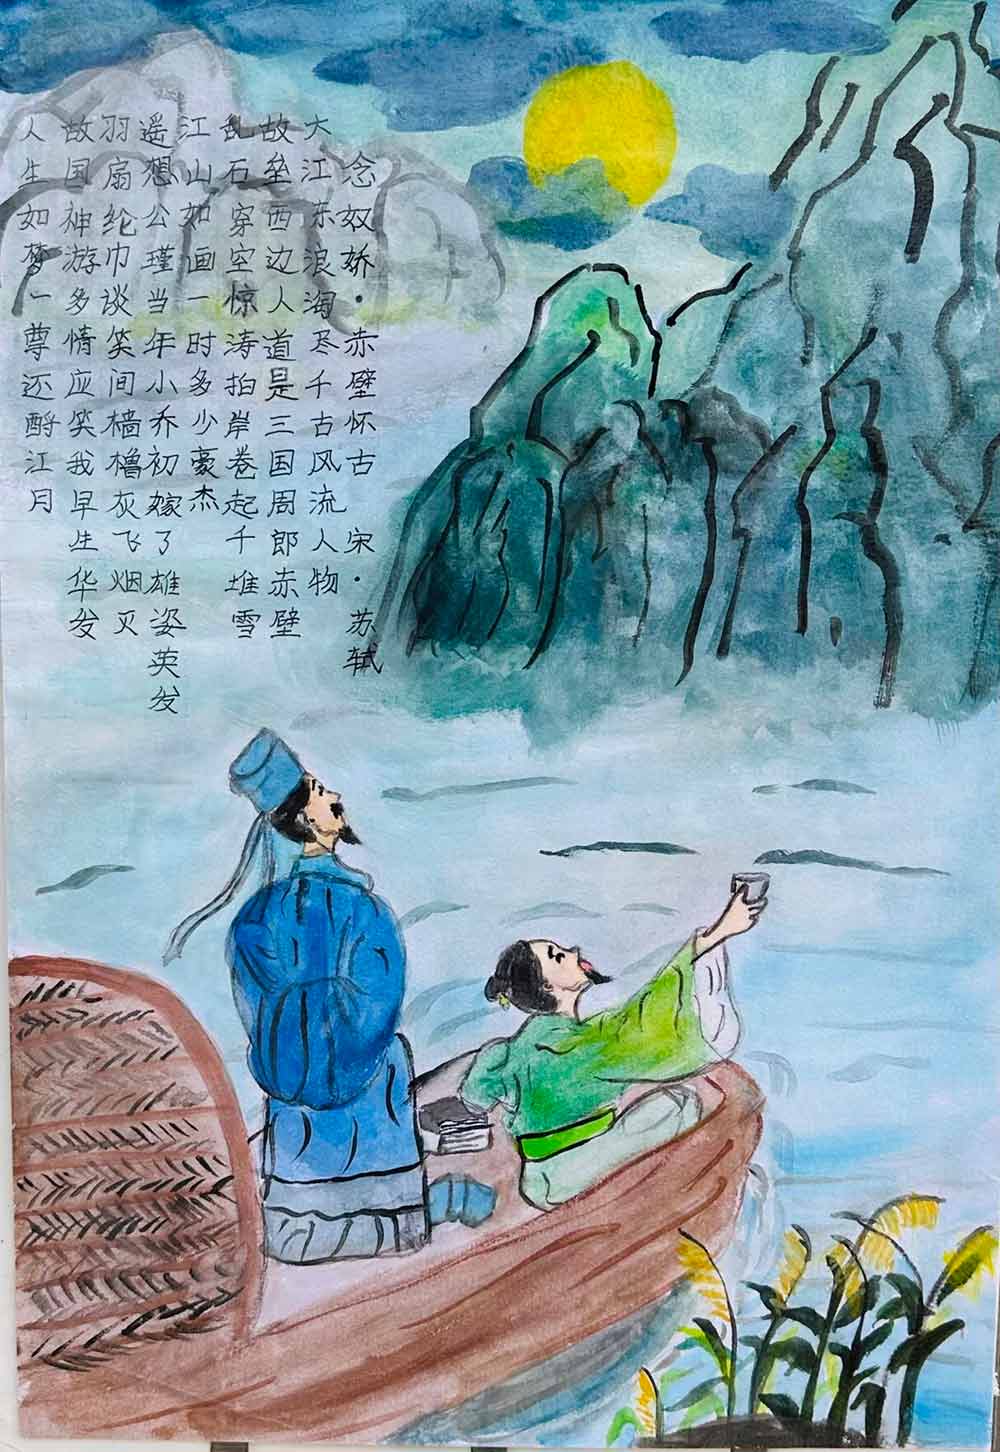 念奴娇·赤壁怀古 宋·苏轼
大江东浪淘尽千古风流人物
故垒西边人道是三国周郎赤壁
乱石穿空惊涛拍岸卷起千堆雪
江山如画一时多少豪杰
遥想公瑾当年小乔初嫁了雄姿英发
羽扇纶巾谈笑间樯橹灰飞烟灭
故国神游多情应笑我早生华发
人生如梦一尊还酹江月